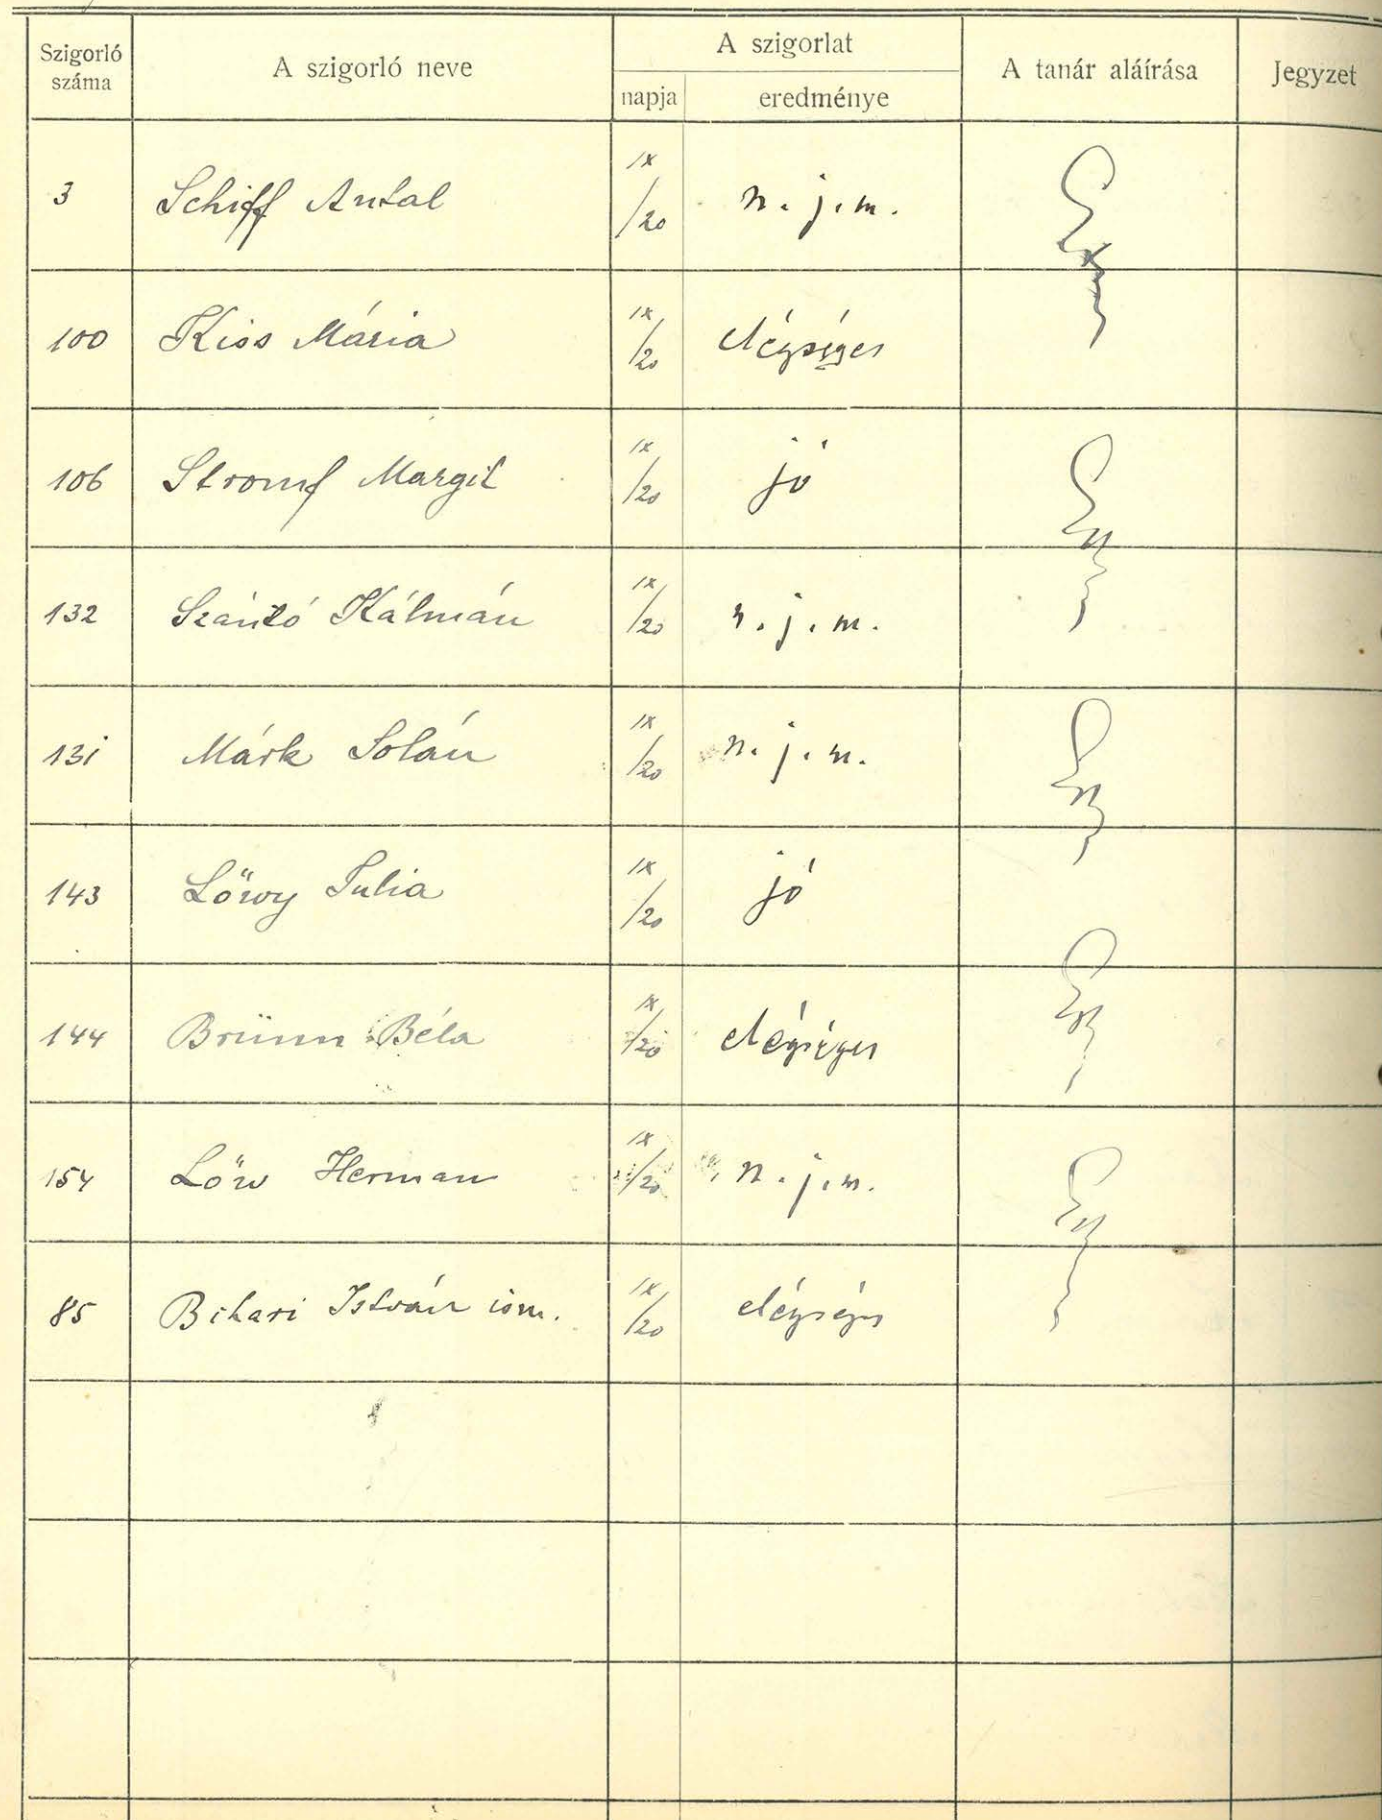 Szigorló száma A szigorló neve A szigorlat A tanár aláírása Jegyzet
napja eredménye
3 Schiff Antal IX/20 n. j. m.
100 Kiss Mária IX/20 elégséges
106 Stromf Margit IX/20 jó
132 Szántó Kálmán IX/20 n. j. m.
131 Márk Solán IX/20 n. j. m.
143 Lőwy Julia IX/20 jó
144 Brünn Béla IX/20 elégséges
154 Lőw Herman IX/20 n. j. m.
85 Bihari István ism. IX/20 elégséges